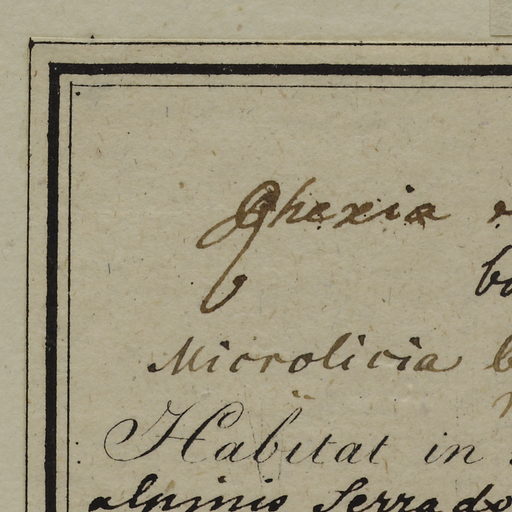 Rhexia
Microlicia
Habitat in
alpinis Serra do